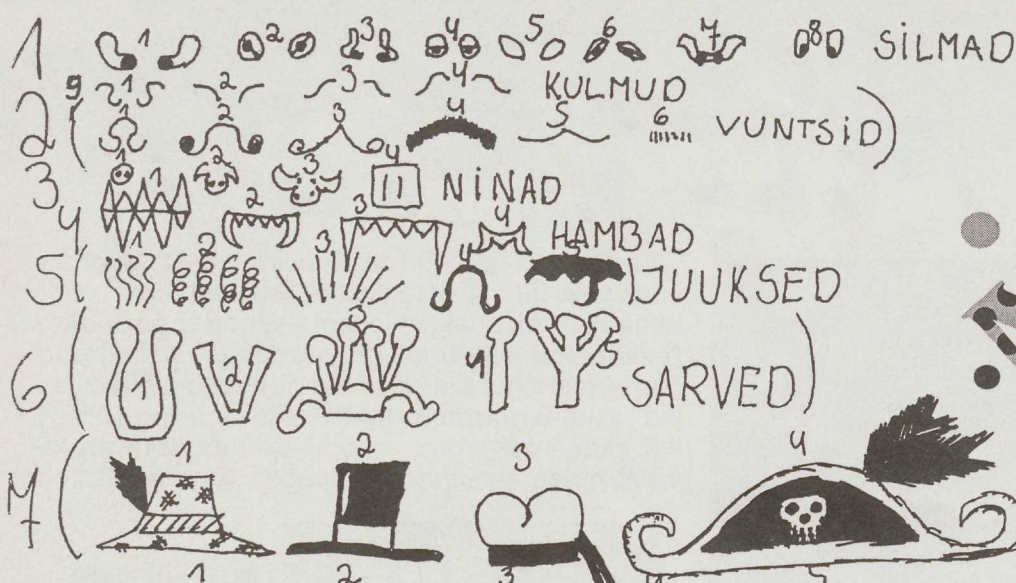 1 1 2 3 4 5 6 7 8 SILMAD
9 1 2 3 4 KULMUD
2 ( 1 2 3 4 5 6 VUNTSID)
3 1 2 3 4 NINAD
4 1 2 3 4 HAMBAD
5 ( 1 2 3 4 5 ) JUUKSED
6 ( 1 2 3 4 5 SARVED)
7 ( 1 2 3 4
1 2 3 4 5